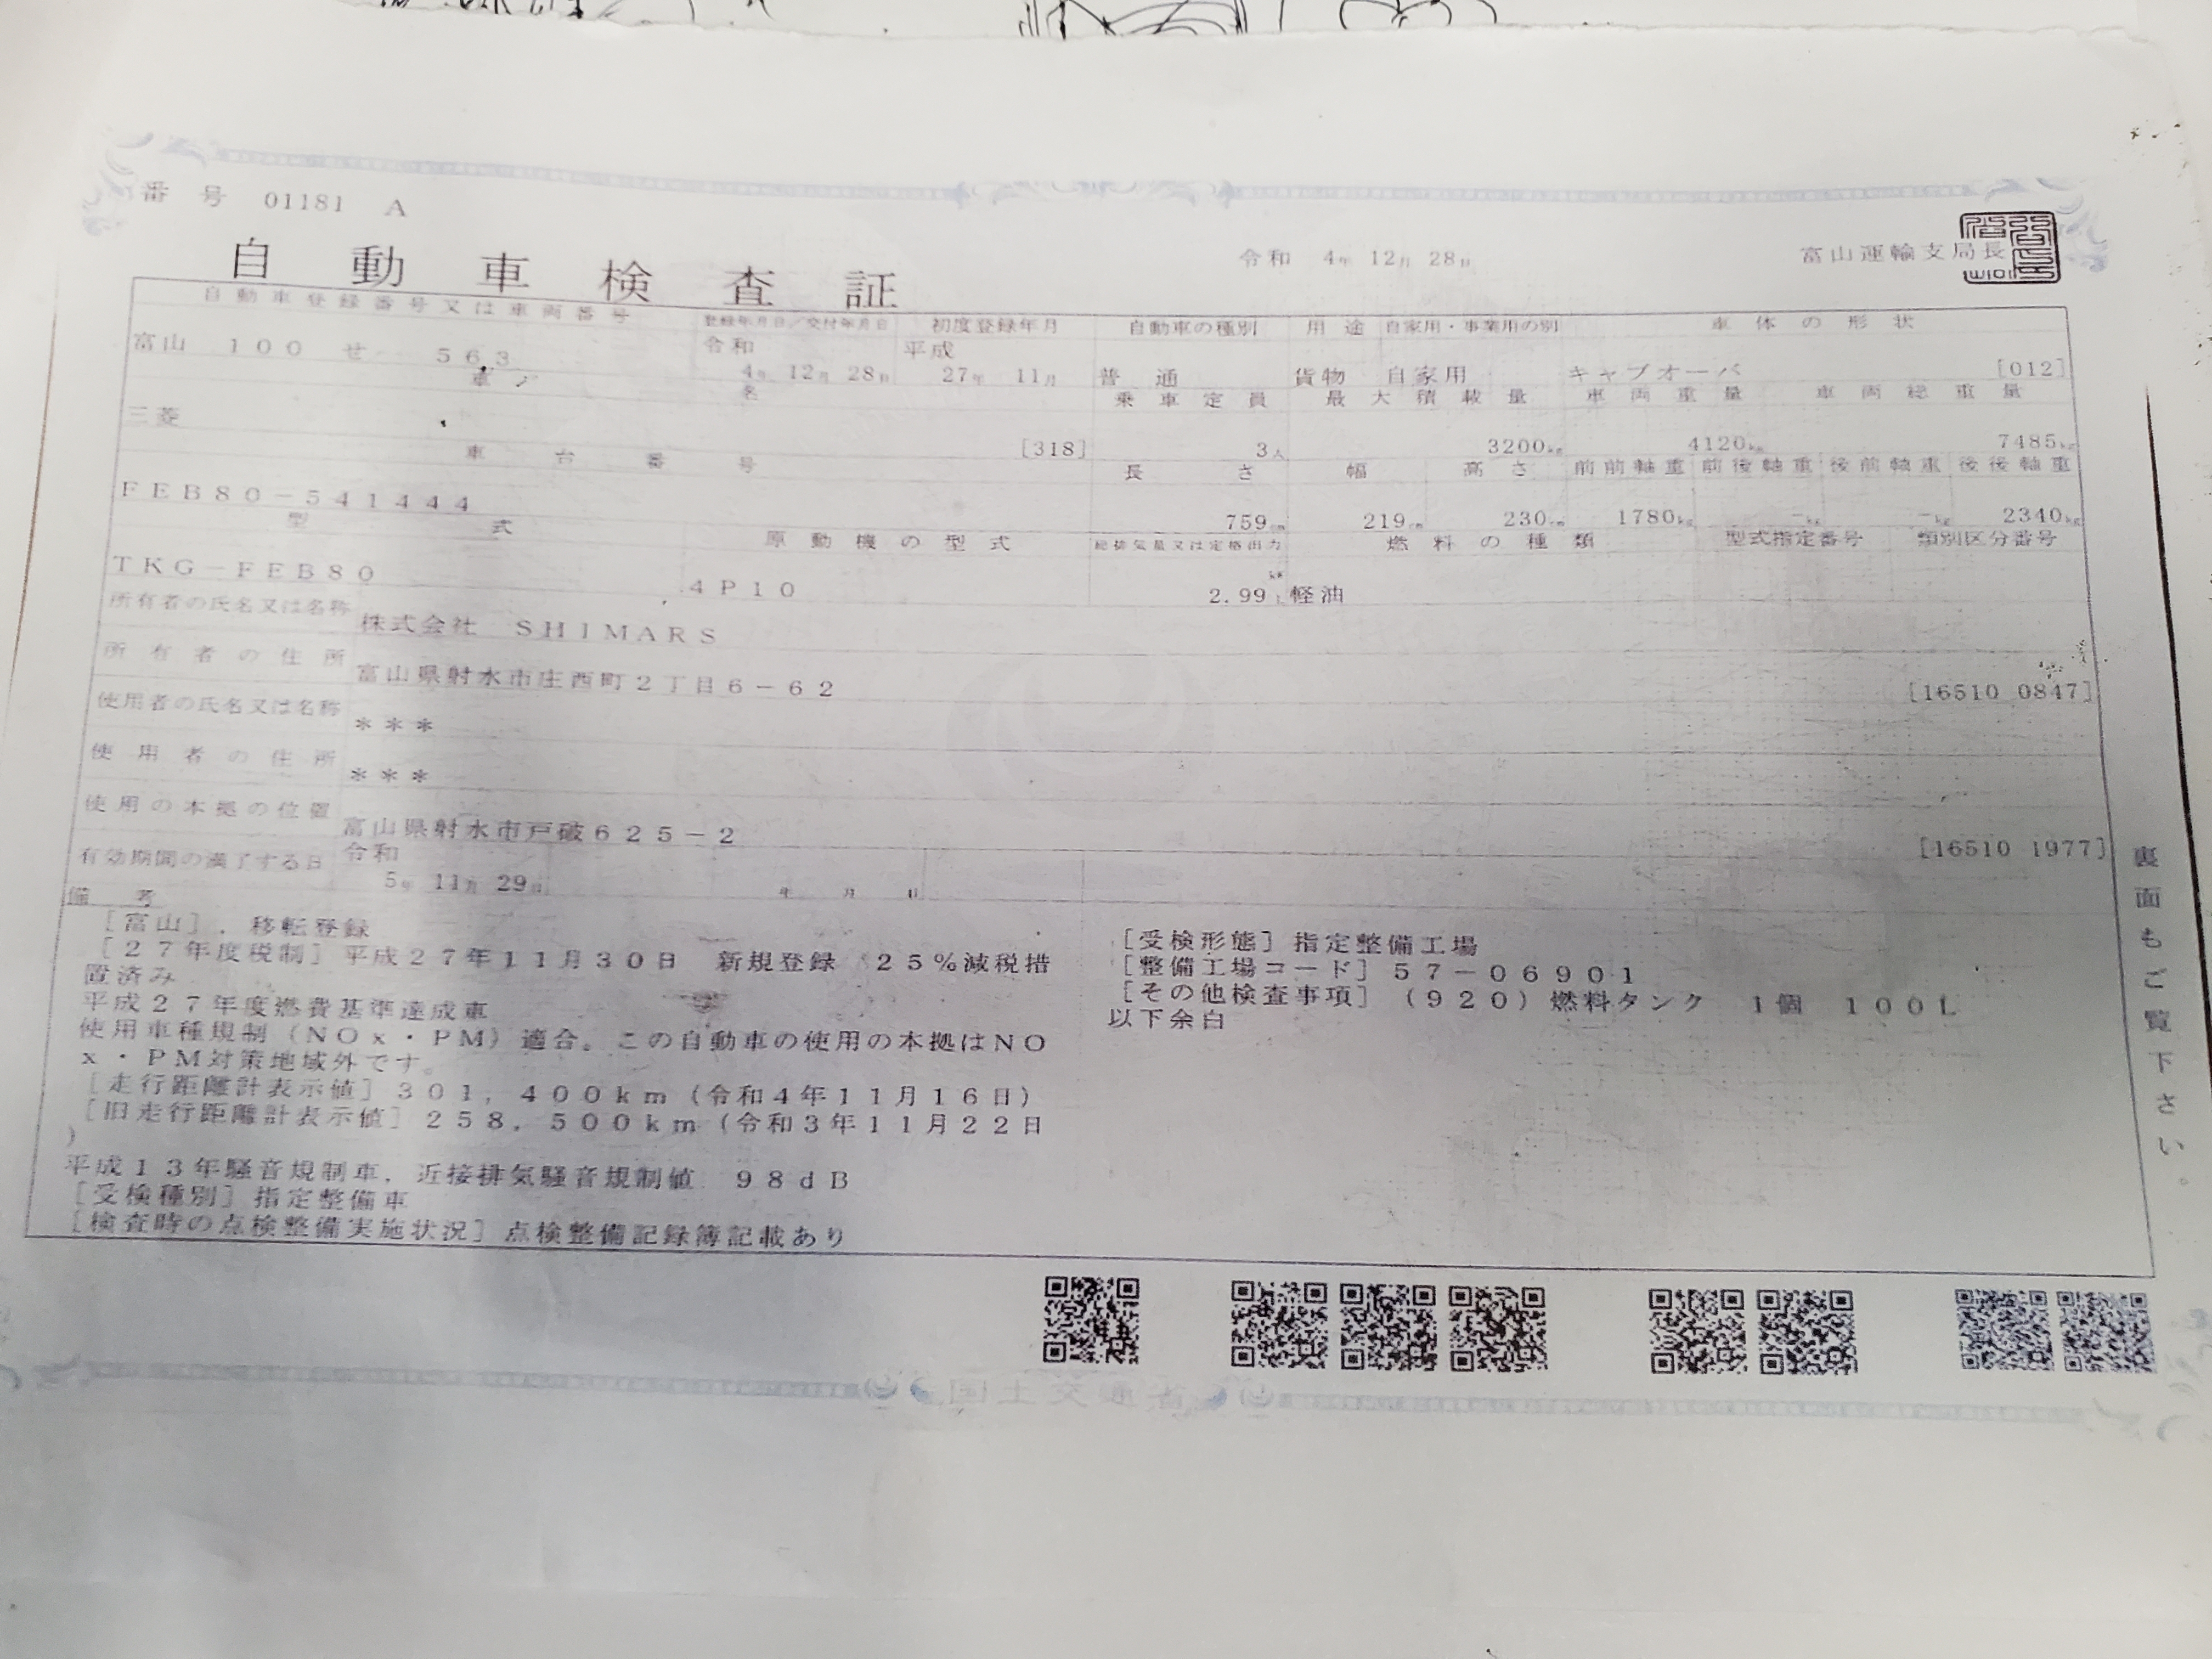 番号 01181 A
自動車検査証
令和 4年 12月 28日
富山運輸支局長
自動車登録番号又は車両番号 登録年月日/交付年月日 初度登録年月 自動車の種別 用途 自家用・事業用の別 車体の形状
富山 100 せ 563 令和 4年 12月 28日 平成 27年 11月 普通 貨物 自家用 キャブオーバ [012]
車名 乗車定員 最大積載量 車両重量 車両総重量
三菱 [318] 3人 3200kg 4120kg 7485kg
車台番号 長さ 幅 高さ 前前軸重 前後軸重 後前軸重 後後軸重
FEB80-541444 759cm 219cm 230cm 1780kg -kg -kg 2340kg
型式 原動機の型式 総排気量又は定格出力 燃料の種類 型式指定番号 類別区分番号
TKG-FEB80 4P10 2.99 kW L 軽油
所有者の氏名又は名称 株式会社 SHIMARS
所有者の住所 富山県射水市庄西町2丁目6-62 [16510 0847]
使用者の氏名又は名称 ***
使用者の住所 ***
使用の本拠の位置 富山県射水市戸破625-2 [16510 1977]
有効期間の満了する日 令和 5年 11月 29日 年 月 日
備考
[富山],移転登録
[27年度税制]平成27年11月30日 新規登録 25%減税措
置済み
平成27年度燃費基準達成車
使用車種規制(NOx・PM)適合。この自動車の使用の本拠はNO
x・PM対策地域外です。
[走行距離計表示値]301,400km(令和4年11月16日)
[旧走行距離計表示値]258,500km(令和3年11月22日
)
平成13年騒音規制車,近接排気騒音規制値 98dB
[受検種別]指定整備車
[検査時の点検整備実施状況]点検整備記録簿記載あり
[受検形態]指定整備工場
[整備工場コード]57-06901
[その他検査事項](920)燃料タンク 1個 100L
以下余白
裏面もご覧下さい。
国土交通省